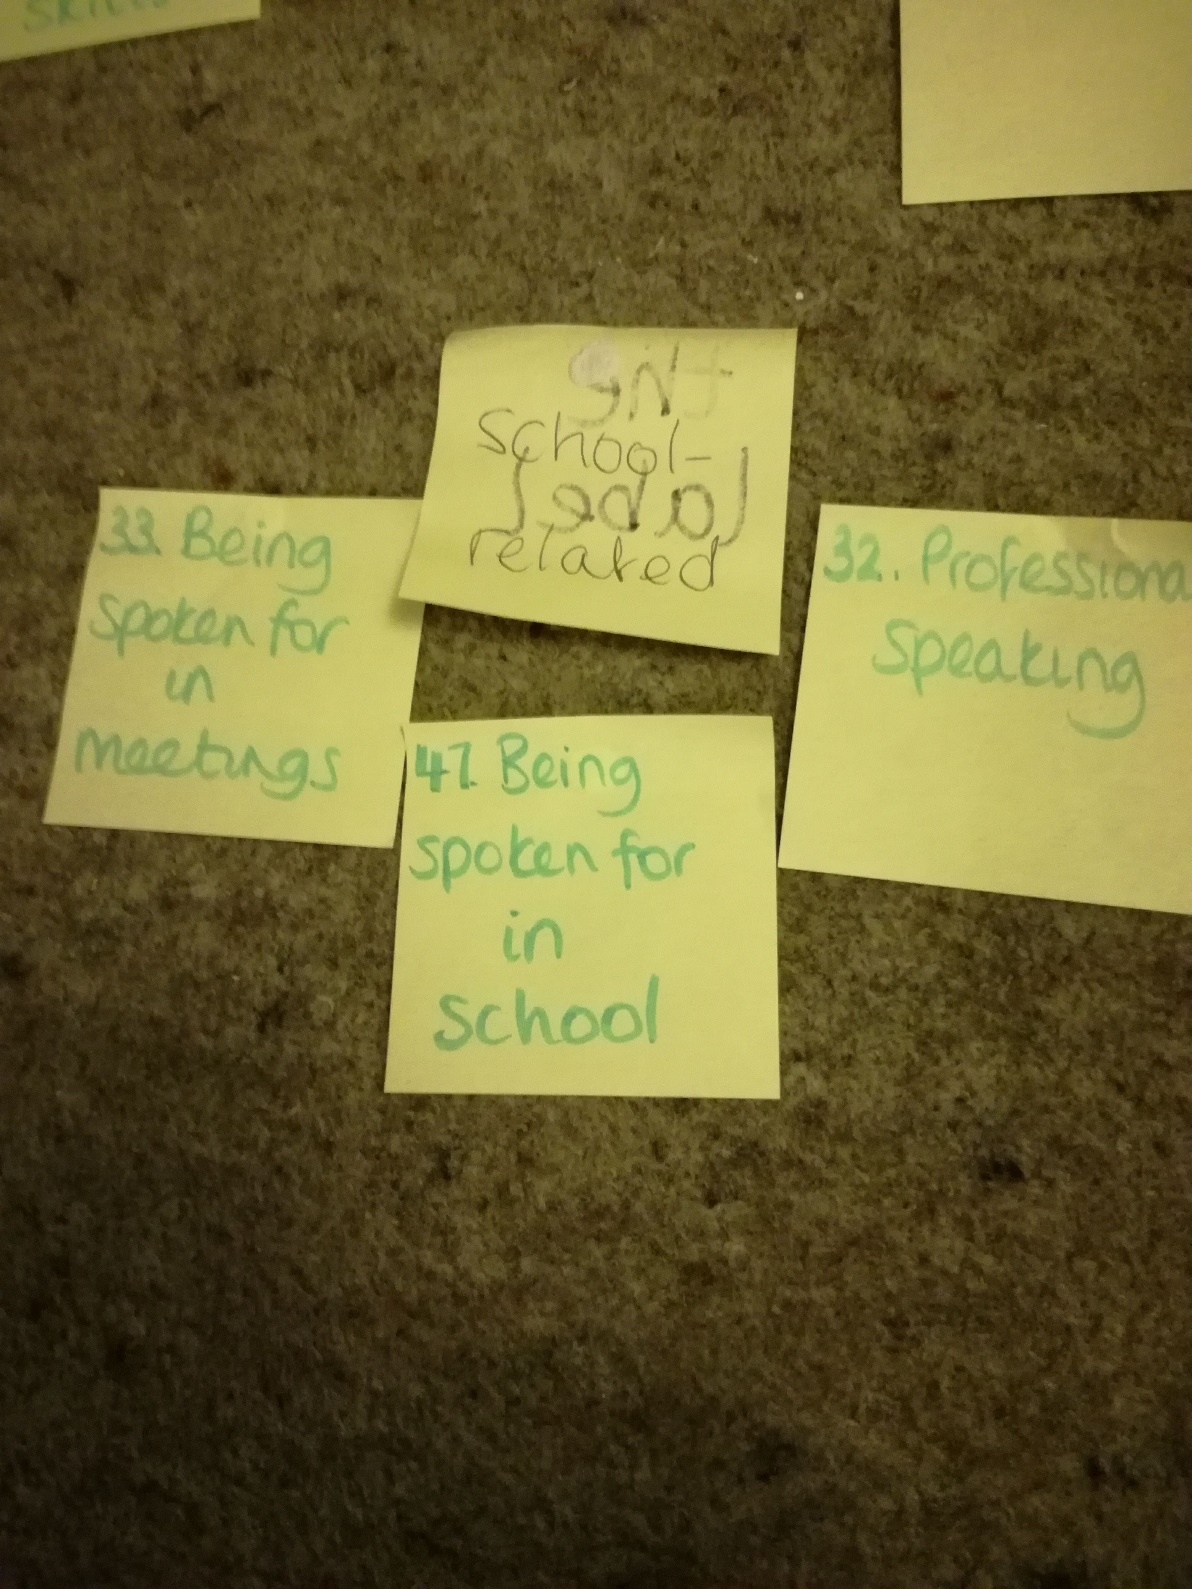 school-
related
33. Being
spoken for
in
meetings
32. Professiona
speaking
47. Being
spoken for
in
school